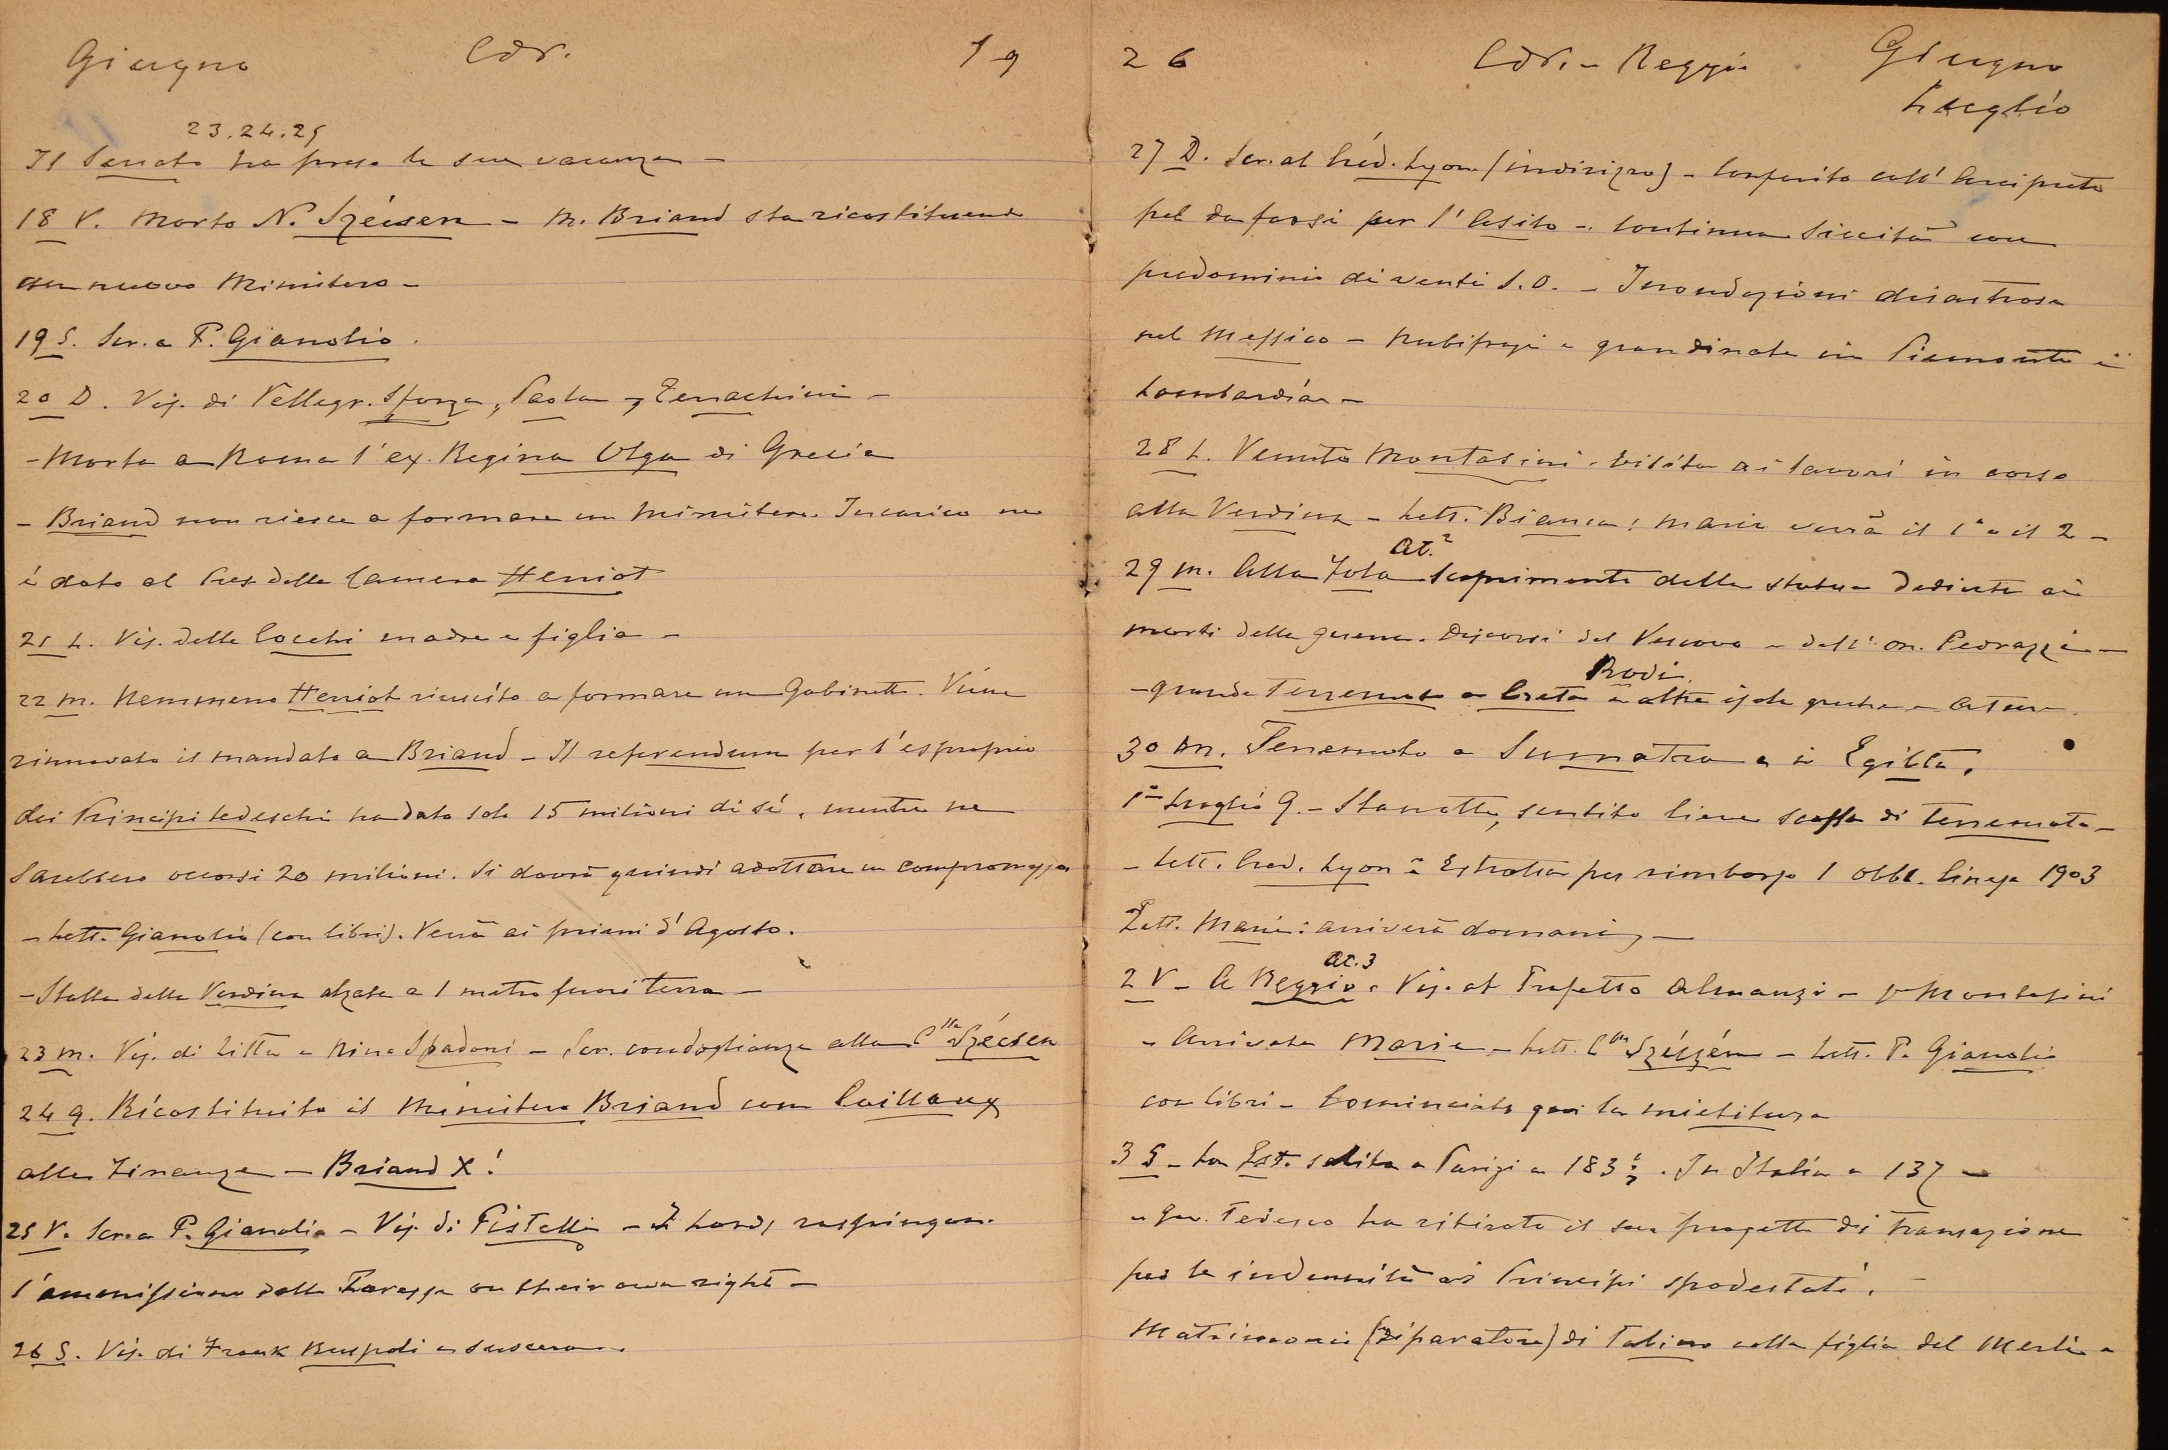 Giugno Cdr. 19
23.24.25
Il Senato ha preso le sue vacanze –
18 V. Morto N. Szécsen – M. Briand sta ricostituendo
un nuovo Ministero –
19 S. Scr. a P. Gianolio.
20 D. Vis. di Pellegr. Sforza, Paola, Terrachini –
– Morta a Roma l'ex. Regina Olga di Grecia
– Briand non riesce a formare un Ministero. Incarico ne
è dato al Pres. della Camera Herriot
21 L. Vis. delle Cocchi madre e figlia –
22 M. Nemmeno Herriot riuscito a formare un Gabinetto. Viene
rinnovato il mandato a Briand – Il referendum per l'esproprio
dei Principi tedeschi ha dato solo 15 milioni di sì, mentre ne
sarebbero occorsi 20 milioni. Si dovrà quindi adottare un compromesso
– Lett. Gianolio (con libri). Verrà ai primi d'Agosto.
– Stalla della Verdina alzata a 1 metro fuori terra –
23 M. Vis. di Litta e Nina Spadoni – Scr. condoglianze alla C.ssa Szécsen
24 G. Ricostituito il Ministero Briand con Caillaux
alle Finanze – Briand X!
25 V. Scr. a P. Gianolio – Vis. di Pistelli – I Lords respingono
l'ammissione delle Paresse on their own right –
26 S. Vis. di Frank Ruspoli e suocera.
26 Cdr. – Reggio Giugno
Luglio
27 D. Scr. al Créd. Lyon. (indirizzo) – Conferito coll'Arciprete
pel da farsi per l'Asilo – Continua siccità con
predominio di venti S.O. – Inondazioni disastrose
nel Messico – Nubifragi e grandinate in Piemonte e
Lombardia –
28 L. Venuto Montasini. Visita ai lavori in corso
alla Verdina – Lett. Bianca: Marie verrà il 1° o il 2 –
At.2
29 M. Alla Tola scoprimento della statua dedicata ai
morti della guerra. Discorsi del Vescovo e dell'on. Pedrazzi –
Rodi
– grande Terremoto a Creta e altre isole greche – Atene.
30 M. Terremoto a Sumatra e in Egitto.
1° Luglio G. – Stanotte, sentito lieve scossa di terremoto –
– Lett. Cred. Lyon: Estratta per rimborso 1 obbl. 1903
Lett. Marie: arriverà domani –
At.3
2 V – A Reggio. Vis. al Prefetto Almansi – Montasini
– Arrivata Marie – Lett. C.ssa Szészén – Lett. P. Gianolio
con libri – Cominciata qui la mietitura
3 S – La Est. salita a Parigi a 183. In Italia a 137 –
– Gov. Tedesco ha ritirato il suo progetto di transazione
per le indennità ai Principi spodestati.
Matrimonio (riparatore) di Tabiano colla figlia del Merli –